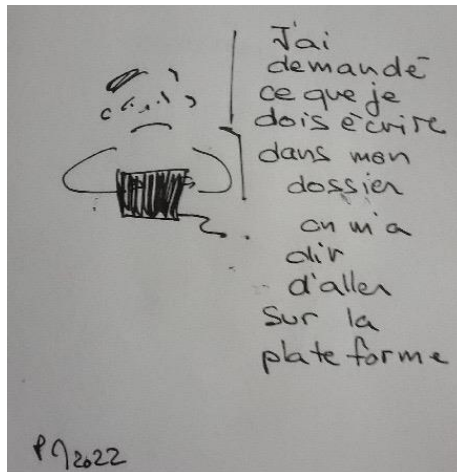 J'ai
demandé
ce que je
dois écrire
dans mon
dossier
on m'a
dir
d'aller
sur la
plate forme
P 2022